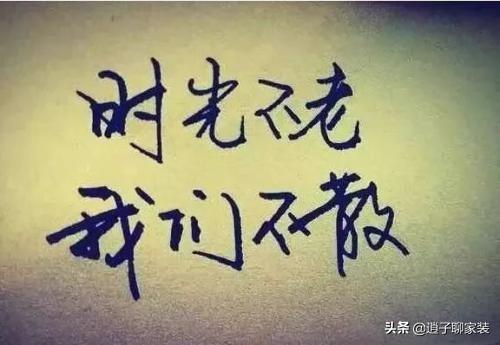 时光不老
我们不散
头条 @逍子聊家装